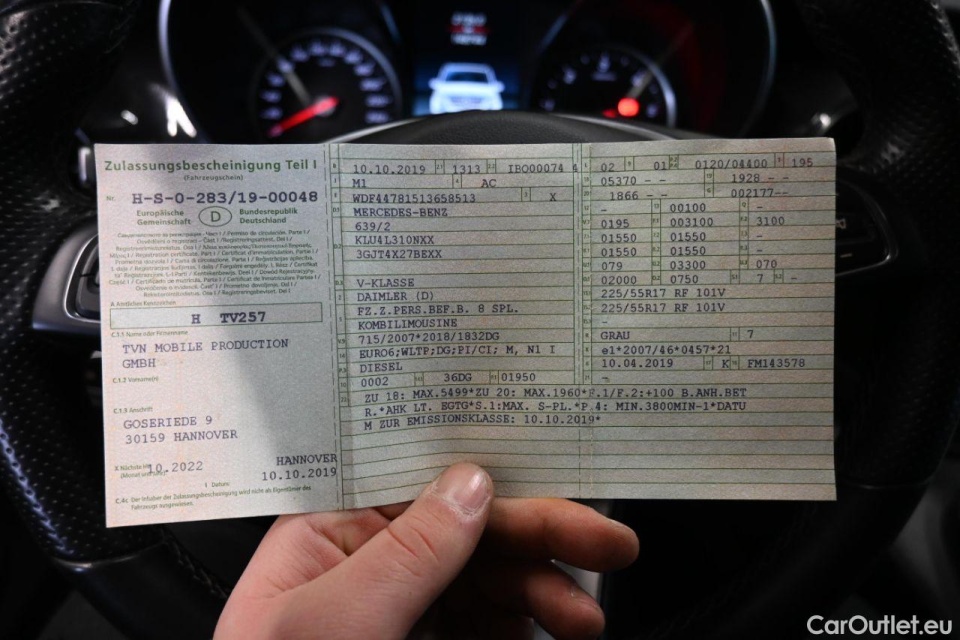 Zulassungsbescheinigung Teil I
(Fahrzeugschein)
Nr. H-S-0-283/19-00048
Europäische Gemeinschaft
D
Bundesrepublik Deutschland
A Amtliches Kennzeichen
H TV257
C.1.1 Name oder Firmenname
TVN MOBILE PRODUCTION
GMBH
C.1.2 Vorname(n)
C.1.3 Anschrift
GOSERIEDE 9
30159 HANNOVER
10.2022
HANNOVER
10.10.2019
I Datum:
C.4c Der Inhaber der Zulassungsbescheinigung wird nicht als Eigentümer des
Fahrzeugs ausgewiesen.
10.10.2019 1313 IBQ000074 4
M1 AC
WDF44781513658513 X
MERCEDES-BENZ
639/2
KLU4L310NXX
3GJT4X27BEXX
V-KLASSE
DAIMLER (D)
FZ.Z.PERS.BEF.B. 8 SPL.
KOMBILIMOUSINE
715/2007*2018/1832DG
EURO6;WLTP;DG;PI/CI; M, N1 I
DIESEL
0002 36DG 01950
02 01 0120/04400 195
05370 - - 1928 - -
1866 - - 002177--
- 00100 -
0195 003100 3100
01550 01550 -
01550 01550 -
079 03300 070
02000 0750 7 -
225/55R17 RF 101V
225/55R17 RF 101V
-
GRAU 7
e1*2007/46*0457*21
10.04.2019 K FM143578
-
ZU 18: MAX.5499*ZU 20: MAX.1960*F.1/F.2:+100 B.ANH.BET
R.*AHK LT. EGTG*S.1:MAX. S-PL.*P.4: MIN.3800MIN-1*DATU
M ZUR EMISSIONSKLASSE: 10.10.2019*
CarOutlet.eu